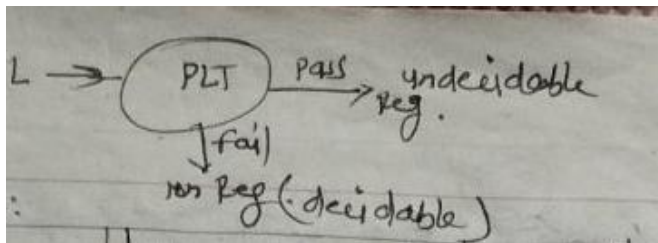 L PLT Pass undecidable
Reg.
fail
non Reg (decidable)
: